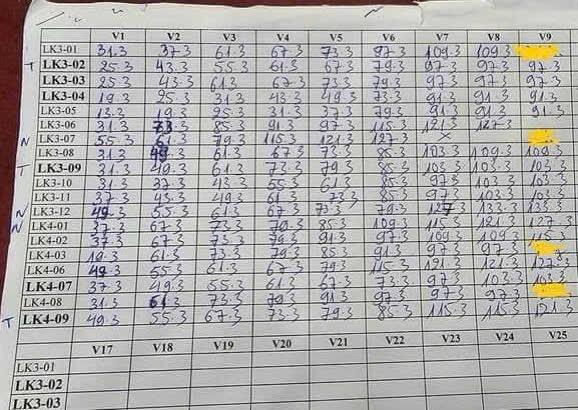 V1 V2 V3 V4 V5 V6 V7 V8 V9
LK3-01 31.3 37.3 61.3 67.3 73.3 97.3 109.3 109.3
T LK3-02 25.3 43.3 55.3 61.3 67.3 79.3 97.3 97.3 97.3
LK3-03 25.3 43.3 61.3 67.3 73.3 79.3 97.3 97.3 97.3
LK3-04 19.3 25.3 31.3 43.3 49.3 73.3 91.3 91.3 91.3
LK3-05 13.3 19.3 25.3 31.3 37.3 79.3 91.3 91.3 91.3
LK3-06 31.3 73.3 85.3 91.3 97.3 115.3 121.3 127.3
N LK3-07 55.3 61.3 79.3 115.3 121.3 127.3 x
LK3-08 31.3 49.3 61.3 67.3 73.3 85.3 103.3 109.3 109.3
T LK3-09 31.3 49.3 61.3 73.3 79.3 85.3 103.3 103.3 103.3
LK3-10 31.3 37.3 43.3 55.3 61.3 85.3 97.3 103.3 103.3
LK3-11 37.3 43.3 49.3 61.3 73.3 85.3 97.3 103.3 103.3
N LK3-12 49.3 55.3 61.3 67.3 73.3 79.3 127.3 133.3 133.3
N LK4-01 37.3 67.3 73.3 79.3 85.3 109.3 115.3 121.3 127.3
LK4-02 37.3 67.3 73.3 79.3 91.3 97.3 109.3 109.3 115.3
LK4-03 19.3 61.3 73.3 79.3 85.3 91.3 97.3 97.3
LK4-06 49.3 55.3 61.3 67.3 79.3 115.3 121.3 121.3 127.3
LK4-07 37.3 49.3 55.3 61.3 67.3 73.3 97.3 103.3 103.3
LK4-08 31.3 61.3 73.3 79.3 91.3 97.3 97.3 97.3
T LK4-09 49.3 55.3 67.3 73.3 79.3 85.3 115.3 115.3 121.3
V17 V18 V19 V20 V21 V22 V23 V24 V25
LK3-01
LK3-02
LK3-03